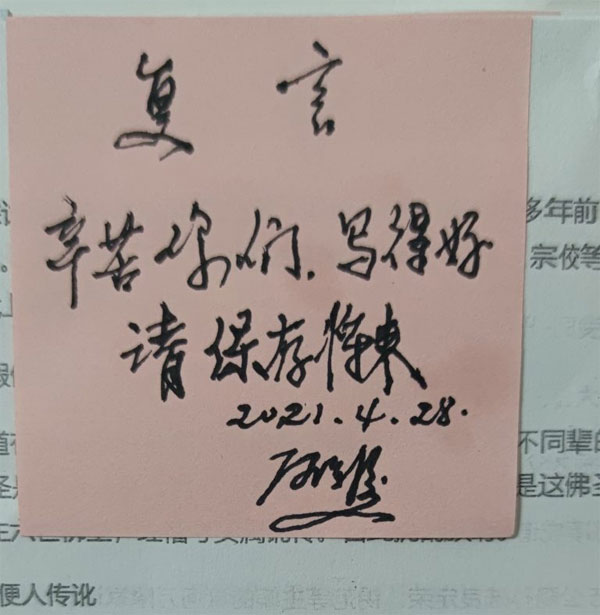 复言
辛苦你们.写得好
请保存将来
2021.4.28.
多年前
宗佼等
不同辈的
是这佛圣
便人传讹